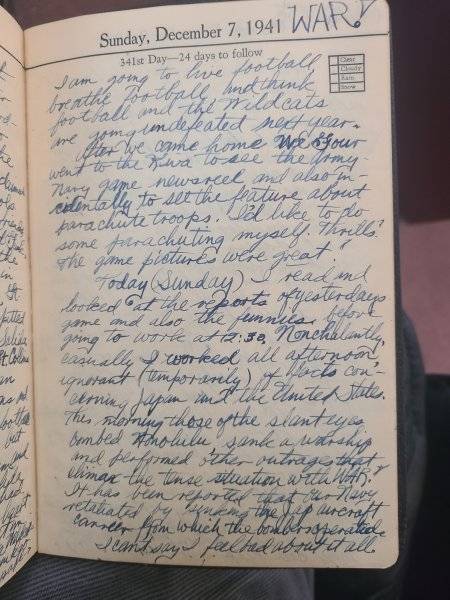 Sunday, December 7, 1941 WAR!
341st Day—24 days to follow
Clear
Cloudy
Rain
Snow
I am going to live football
breathe football, and think
football and the Wildcats
are going undefeated next year.
After we came home we four
went to the Riva to see the Army-
Navy game newsreel and also in-
cidentally to set the feature about
parachute troops. I'd like to do
some parachuting myself. Thrills.
The game pictures were great.
Today (Sunday) I read and
looked at the reports of yesterdays
game and also the funnies before
going to work at 12:30. Nonchalantly,
casually I worked all afternoon
ignorant (temporarily) of facts con-
cerning Japan and the United States.
This morning those of the slant eyes
bombed Honolulu, sank a warship
and performed other outrages that
climax the tense situation with WAR!
It has been reported that our Navy
retaliated by sinking the jap aircraft
carrier from which the bombers operated.
I can't say I feel bad about it all.